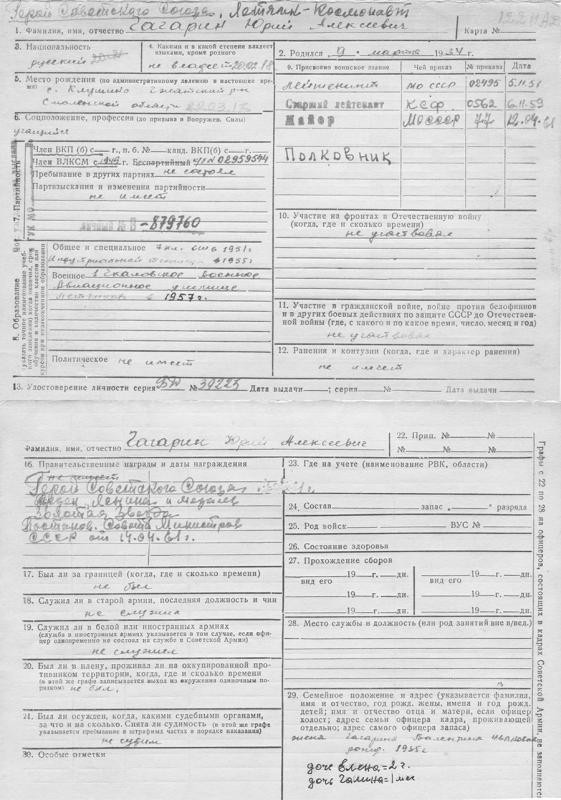 Герой Советского Союза, Летчик-Космонавт
1. Фамилия, имя, отчество Гагарин Юрий Алексеевич Карта №
3. Национальность
русский
4. Какими и в какой степени владеет языками, кроме родного
не владеет
2. Родился 9 марта 1934 г.
5. Место рождения (по административному делению в настоящее время)
с. Клушино Гжатский р-н
Смоленской области
6. Соцположение, профессия (до призыва в Вооружен. Силы)
учащийся
9. Присвоено воинское звание Чей приказ № приказа Дата
Лейтенант МО СССР 02495 5.11.57
Старший лейтенант КСФ 0562 6.11.59
Майор МО СССР 77 12.04.61
Полковник
7. Партийность
Член ВКП (б) с г., п. б. № канд. ВКП(б) с г.
Член ВЛКСМ с 1949 г. Беспартийный
Пребывание в других партиях не состоял
Партвзыскания и изменения партийности
не имеет
личный № В-879760
8. Образование
Общее и специальное 7 кл. 1951 г.
Индустриальный техникум в 1955 г.
Военное 1 Чкаловское военное
Авиационное училище
летчиков в 1957 г.
Политическое не имеет
10. Участие на фронтах в Отечественную войну
(когда, где и сколько времени)
не участвовал
11. Участие в гражданской войне, войне против белофиннов
и в других боевых действиях по защите СССР до Отечествен-
ной войны (где, с какого и по какое время, число, месяц и год)
не участвовал
12. Ранения и контузии (когда, где и характер ранения)
не имеет
13. Удостоверение личности серия № 39225 Дата выдачи ; серия № Дата выдачи
Фамилия, имя, отчество Гагарин Юрий Алексеевич
22. Прип. № №
№ №
16. Правительственные награды и даты награждения
не имеет
Герой Советского Союза
Орден Ленина и медаль
Золотая Звезда
Постанов. Совета Министров
СССР от 14.04.61 г.
17. Был ли за границей (когда, где и сколько времени)
не был
18. Служил ли в старой армии, последняя должность и чин
не служил
19. Служил ли в белой или иностранных армиях
(служба в иностранных армиях указывается в том случае, если офи-
цер одновременно не состоял на службе в Советской Армии)
не служил
20. Был ли в плену, проживал ли на оккупированной про-
тивником территории, когда, где и сколько времени
(в этой же графе записывается выход из окружения одиночным по-
рядком) не был.
21. Был ли осужден, когда, какими судебными органами,
за что и на сколько. Снята ли судимость (в этой же графе
указывается пребывание в штрафных частях в порядке наказания)
не судим
30. Особые отметки
23. Где на учете (наименование РВК, области)
24. Состав запас разряда
25. Род войск ВУС №
26. Состояние здоровья
27. Прохождение сборов
19 г. дн. 19 г. дн.
вид его вид его
19 г. дн. 19 г. дн.
28. Место службы и должность (или род занятий вне в/вед.)
29. Семейное положение и адрес (указывается фамилия,
имя и отчество, год рожд. жены, имена и год рожд.
детей; имя и отчество отца и матери, если офицер
холост; адрес семьи офицера кадра, проживающей
отдельно; адрес самого офицера запаса)
жена Гагарина Валентина Ивановна
рожд. 1935 г.
дочь Елена=2 г.
дочь Галина=1 мес
Графы с 22 по 28 на офицеров, состоящих в кадрах Советской Армии, не заполняются